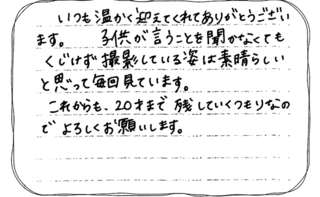 いつも温かく迎えてくれてありがとうござい
ます。 子供が言うことを聞かなくても
くじけず撮影している姿は素晴らしい
と思って毎回見ています。
これからも、20才まで残していくつもりなの
でよろしくお願いします。